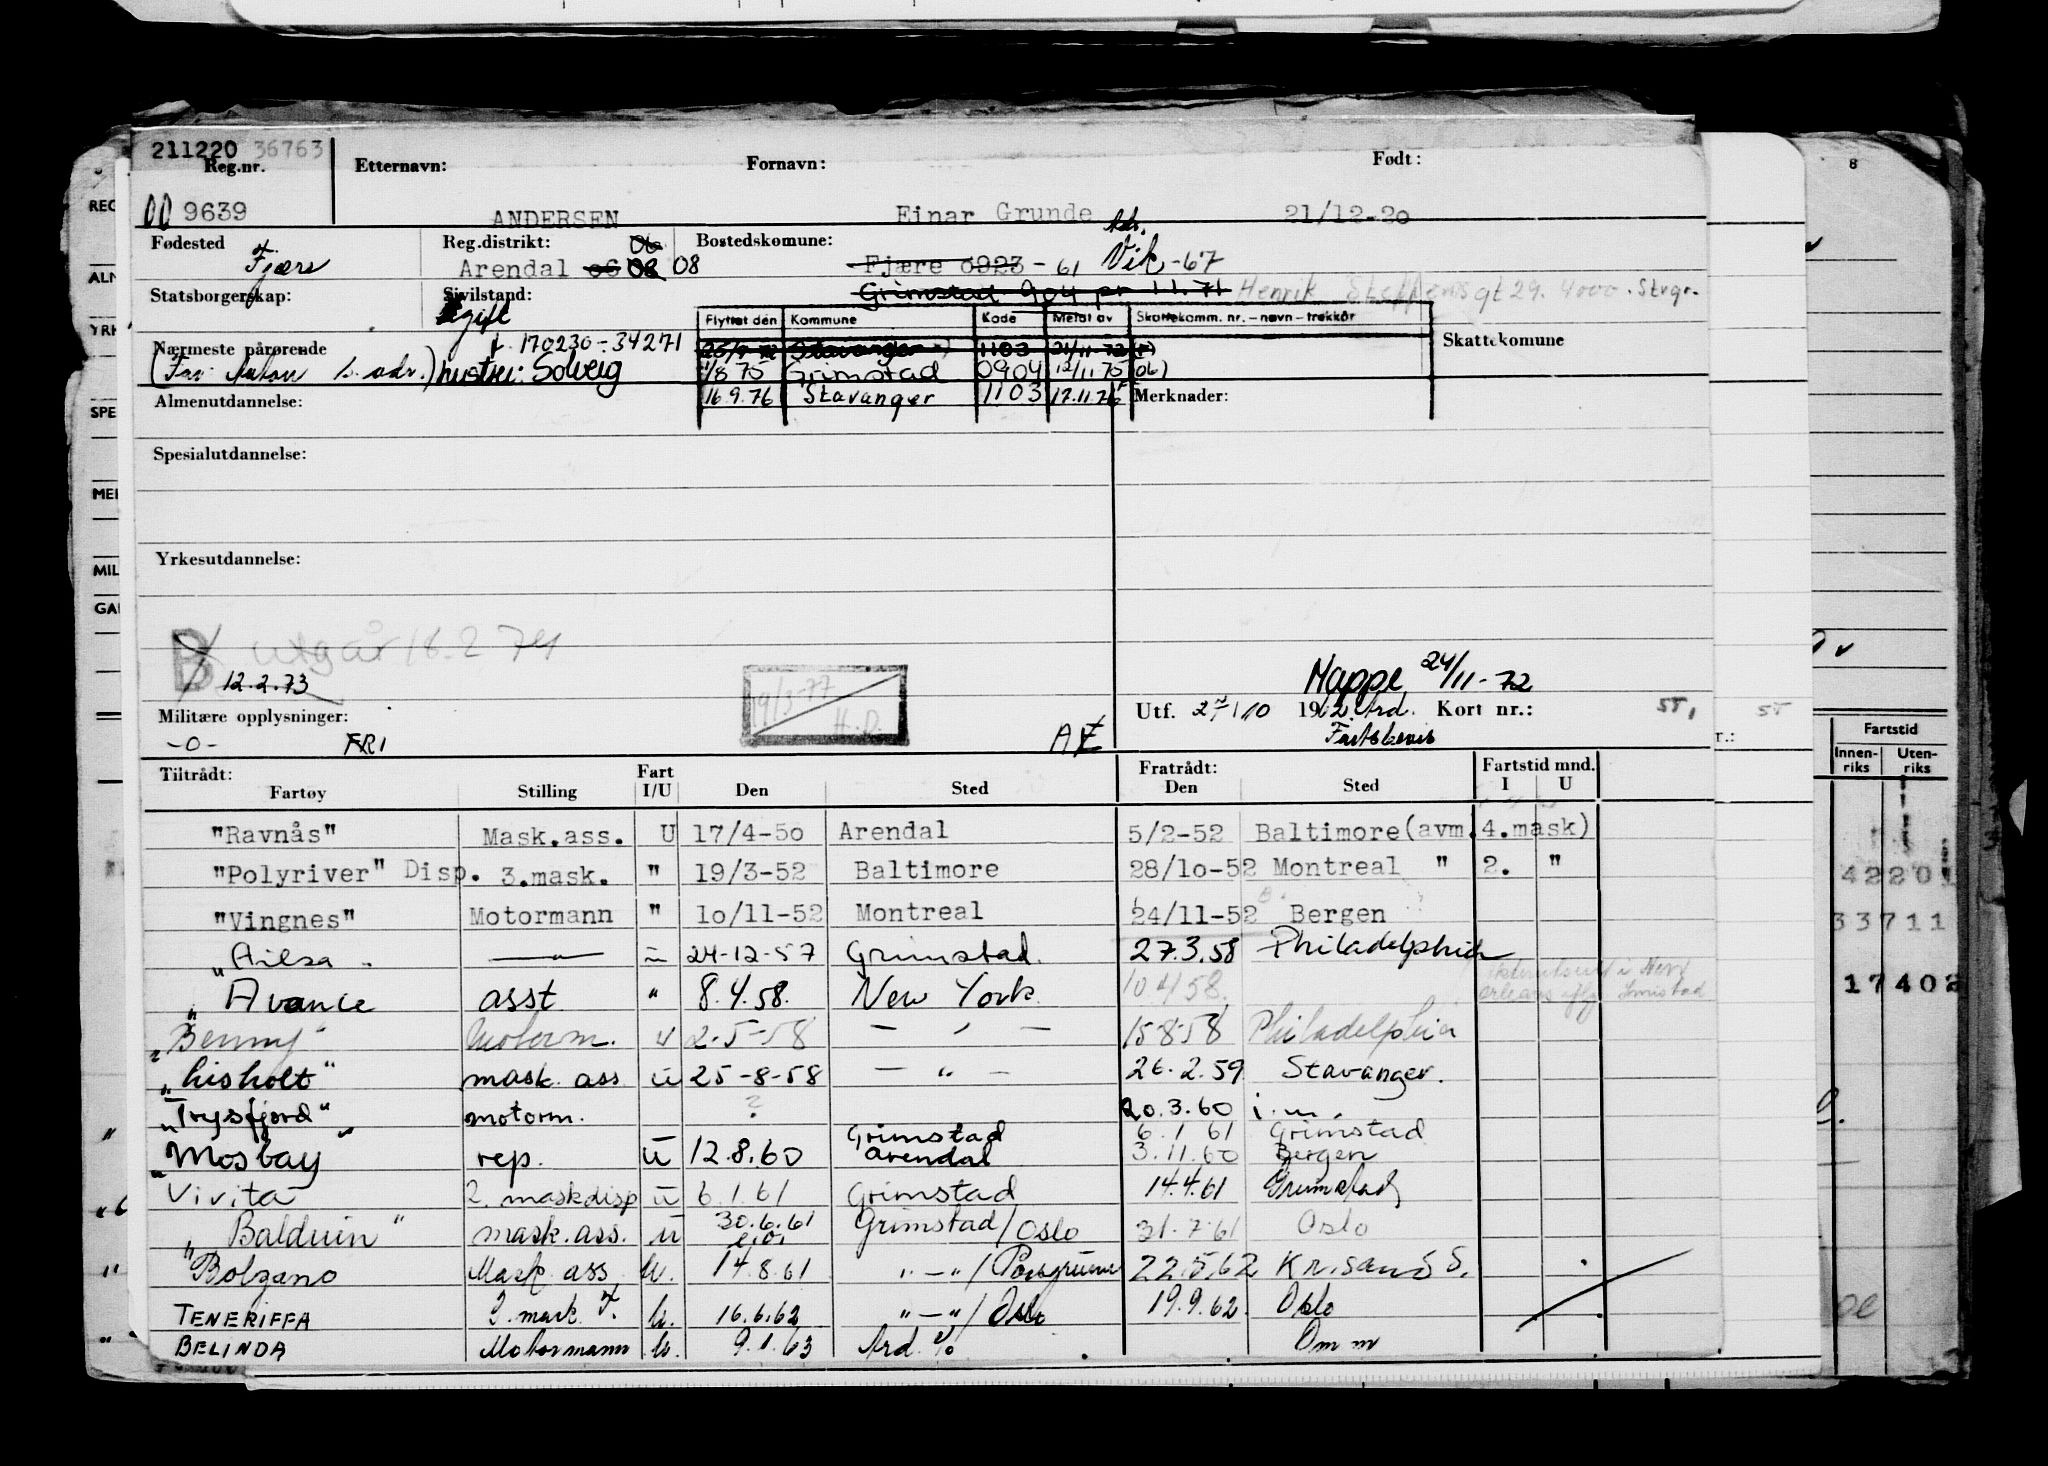 211220 36763
Reg.nr. Etternavn: Fornavn: Født:
00 9639 ANDERSEN Einar Grunde 21/12-20
Fødested Reg.distrikt: 06 Bostedskomune: Adr.
Fjære Arendal 06 08 08 Fjære 0923 - 61 Vik -67
Statsborgerskap: Sivilstand: Grimstad 904 pr 11.71 Henrik Steffens gt 29. 4000. Stvgr.
gift
Flyttet den Kommune Kode Meldt av Skattekomm. nr. – navn – trekkår
Nærmeste pårørende f. 170230-34271 25/9 72 Stavanger 1103 21/11-72 Skattekomune
(Far: Anton s. adr.) hustru: Solveig 1/8 75 Grimstad 0904 12/11 75
Almenutdannelse: 16.9.76 Stavanger 1103 17.11.76 Merknader:
Spesialutdannelse:
Yrkesutdannelse:
B utgår 18.2 74
12.2.73
Mappe 24/11-72
19/3-77 H.D.
Militære opplysninger: Utf. 27/10 1962 Ard. Kort nr.: 55,
-0- FRI AE
Tiltrådt: Fart Fratrådt: Fartstid mnd.
Fartøy Stilling I/U Den Sted Den Sted I U
"Ravnås" Mask.ass. U 17/4-50 Arendal 5/2-52 Baltimore(avm.4.mask)
"Polyriver" Disp. 3.mask. " 19/3-52 Baltimore 28/10-52 Montreal " 2. "
"Vingnes" Motormann " 10/11-52 Montreal 24/11-52 Bergen
"Ailsa — " — " 24-12-57 Grimstad. 27.3.58 Philadelphia
"Avance asst " 8.4.58. New York. 10.4.58.
"Benny" Motorm. u 2-5-58 — " — 15-8-58 Philadelphia
"Lisholt" mask. ass u 25-8-58 — " — 26.2.59 Stavanger.
"Trysfjord" motorm. ? 20.3.60 i.m.
Grimstad 6.1 61 Grimstad
"Mosbay" rep. u 12.8.60 Arendal 3.11.60 Bergen
Vivita 2. maskdisp u 6.1.61 Grimstad 14.4.61 Grimstad
"Balduin" mask.ass. u 30.6.61 Grimstad/Oslo 31.7.61 Oslo
"Bolzano Mask. ass u. 14.8.61 " — " / Porsgrunn 22.5.62 Kr.sand S.
TENERIFFA 2. mask. F. u. 16.6.62 " — " / Oslo 19.9.62. Oslo
BELINDA Motormann u. 9.1.63 Ard. Om m
8
REG
ALM
YRK
SPE
MER
MIL
GAR
55
Fartstid
Innenriks Utenriks
42201
33711
17402